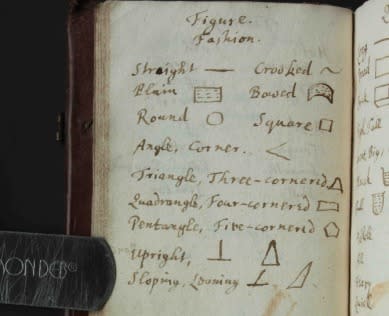 Figure.
Fashion.
Straight Crooked
Plain Bowed
Round Square
Angle, Corner.
Triangle, Three-cornered
Quadrangle, Four-cornered
Pentangle, Five-cornered
Upright,
Sloping, Leaning